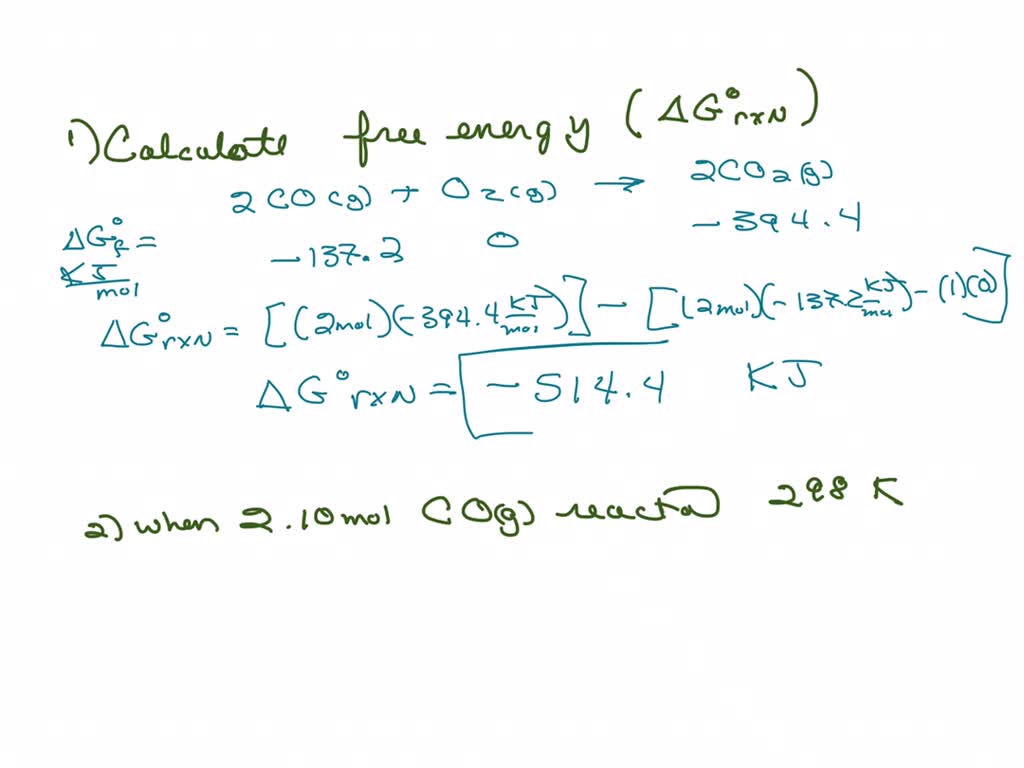 1) Calculate free energy (ΔG°rxn)
2CO(g) + O2(g) → 2CO2(g)
ΔG°f = -137.2 0 -394.4
KJ/mol
ΔG°rxn = [(2mol)(-394.4 KJ/mol)] - [(2mol)(-137.2 KJ/mol) - (1)(0)]
ΔG°rxn = -514.4 KJ
2) when 2.10 mol CO(g) reacted 298 K